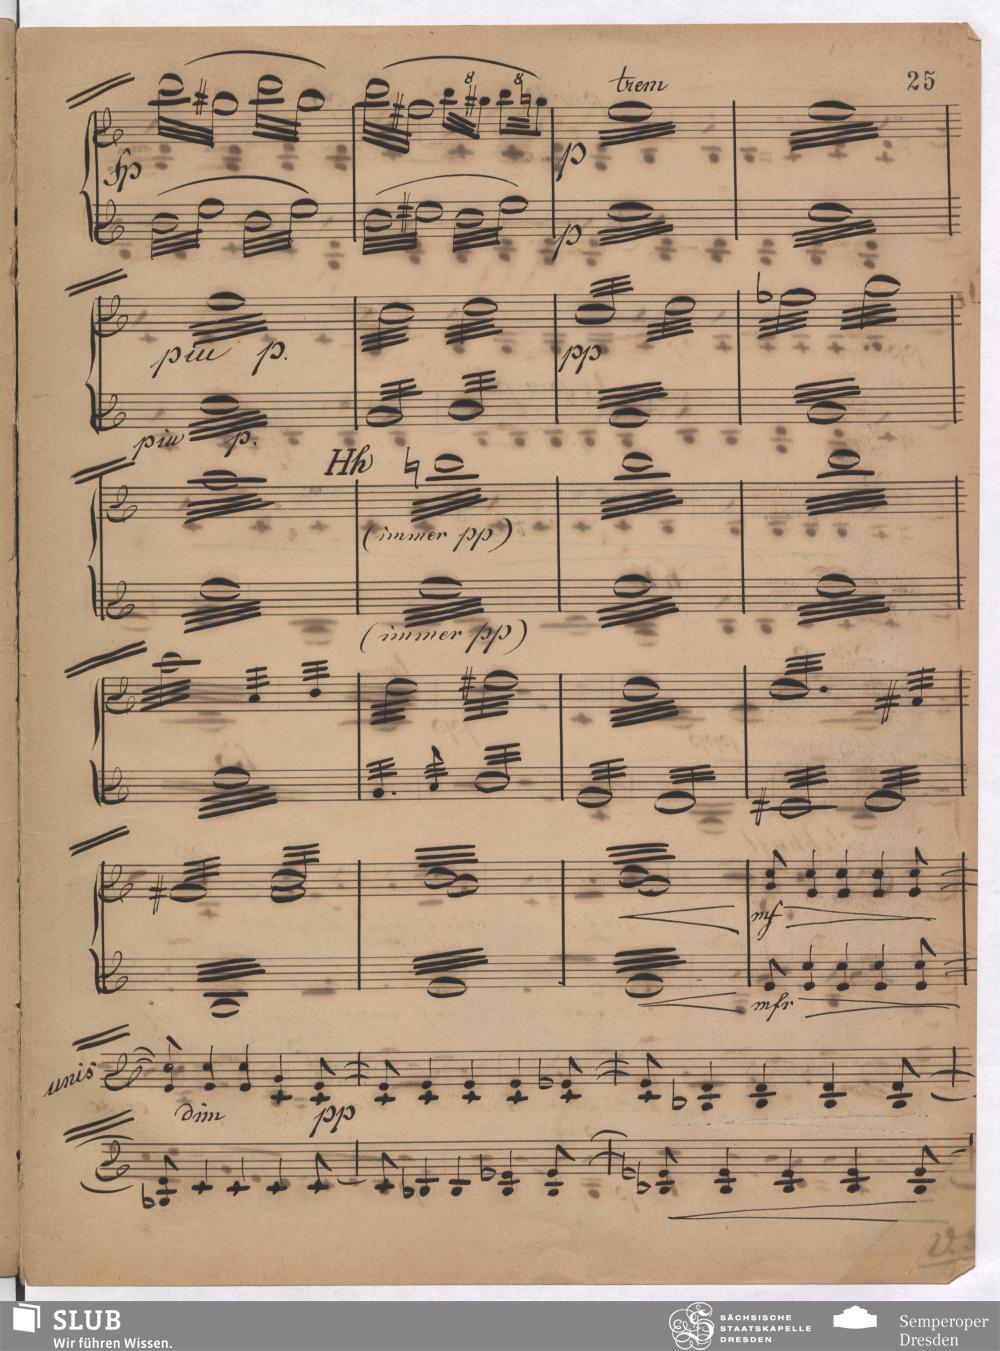 trem 25
8 8
fp p
p
piu p. pp
piu p.
Hh
(immer pp)
(immer pp)
mf
mfr.
unis
dim pp
SLUB
Wir führen Wissen.
SÄCHSISCHE
STAATSKAPELLE
DRESDEN
Semperoper
Dresden